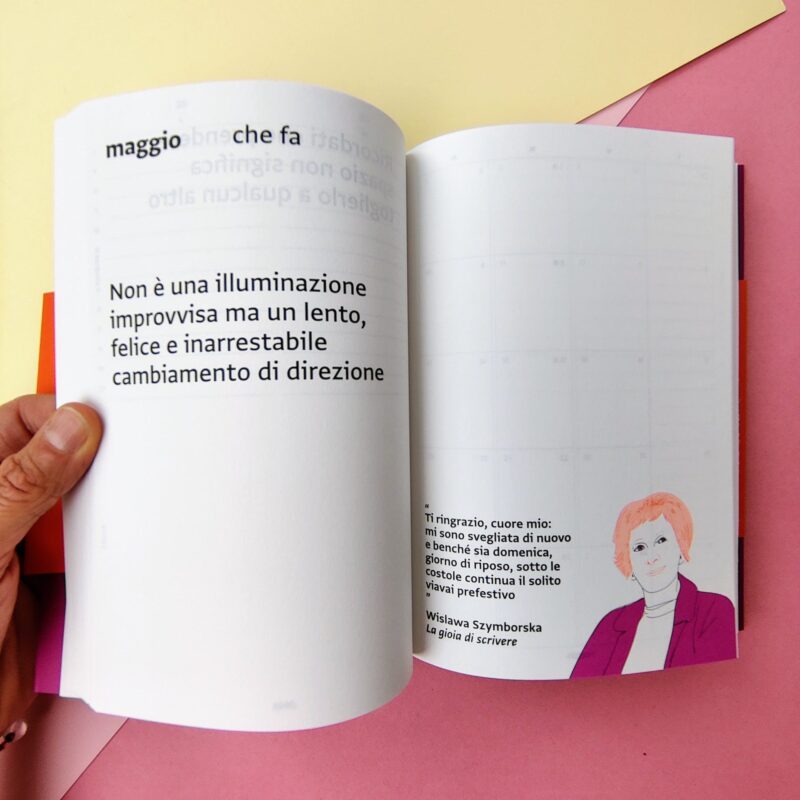 maggio che fa
Non è una illuminazione
improvvisa ma un lento,
felice e inarrestabile
cambiamento di direzione
“
Ti ringrazio, cuore mio:
mi sono svegliata di nuovo
e benché sia domenica,
giorno di riposo, sotto le
costole continua il solito
viavai prefestivo
”
Wislawa Szymborska
La gioia di scrivere